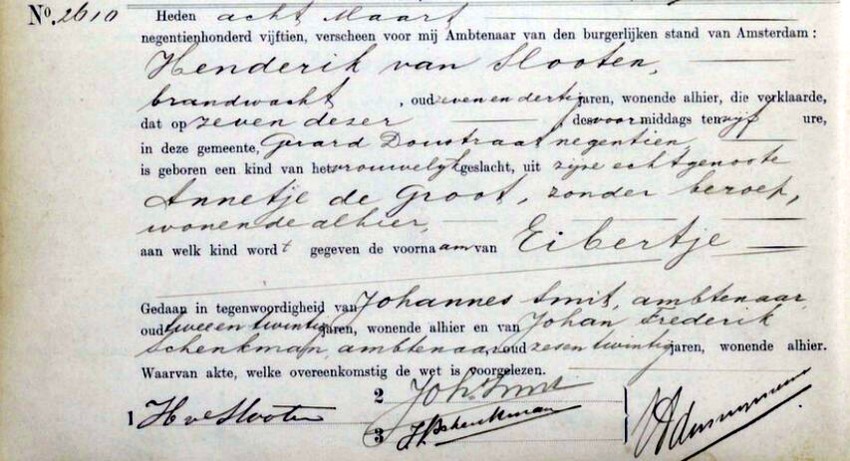 No. 2610 Heden acht Maart
negentienhonderd vijftien, verscheen voor mij Ambtenaar van den burgerlijken stand van Amsterdam:
Henderik van Slooten,
brandwacht, oud zeven en dertig jaren, wonende alhier, die verklaarde,
dat op zeven dezer des voormiddags ten vijf ure,
in deze gemeente, Gerard Doustraat negentien,
is geboren een kind van het vrouwelijk geslacht, uit zijne echtgenoote
Annetje de Groot, zonder beroep,
wonende alhier,
aan welk kind wordt gegeven de voornaam van Eibertje
Gedaan in tegenwoordigheid van Johannes Smit, ambtenaar,
oud twee en twintig jaren, wonende alhier en van Johan Frederik
Schenkman, ambtenaar, oud zes en twintig jaren, wonende alhier.
Waarvan akte, welke overeenkomstig de wet is voorgelezen.
2 Joh. Smit
1 H v Slooten
3 JFSchenkman